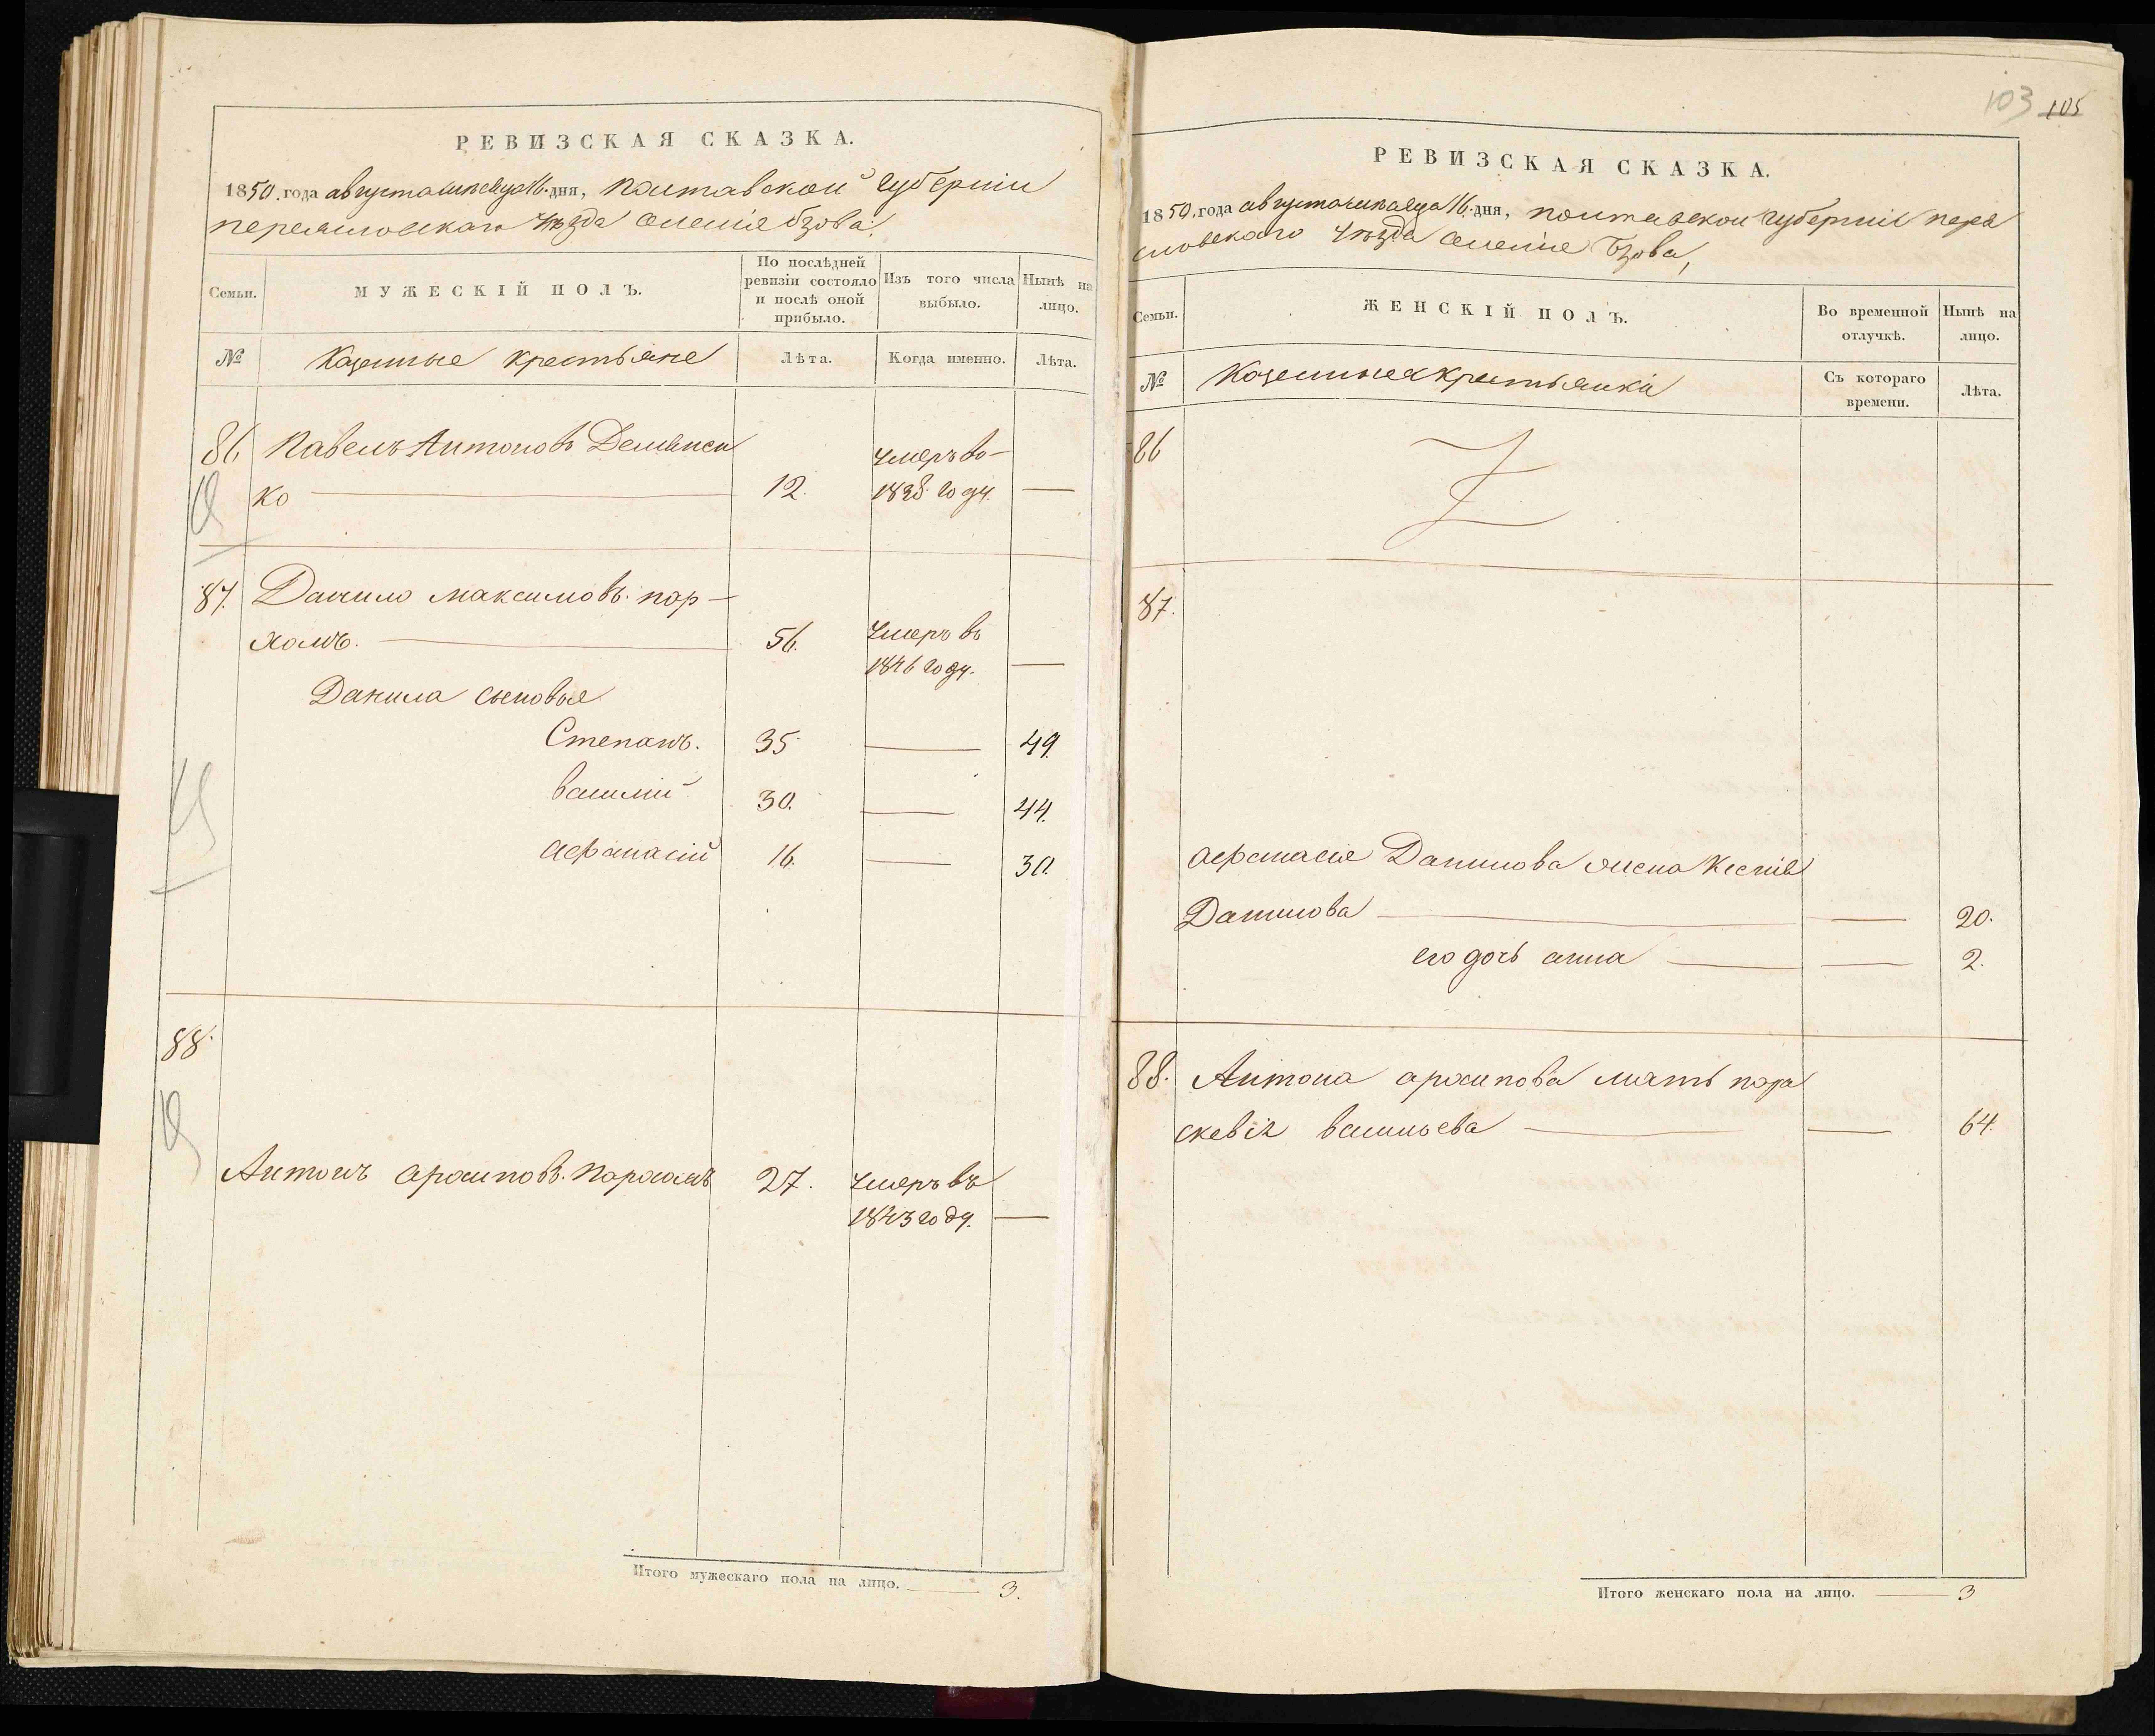 РЕВИЗСКАЯ СКАЗКА.
1850. года августа месяца 16. дня, полтавской губернии
переяславскаго уѣзда селенія бзова.
Семьи.
МУЖЕСКІЙ ПОЛЪ.
По послѣдней
ревизіи состояло
и послѣ оной
прибыло.
Изъ того числа
выбыло.
Нынѣ на
лицо.
№
Казенные крестьяне
Лѣта.
Когда именно.
Лѣта.
86 Павелъ Антоновъ
ко 12. умеръ во
году.
87. Данило максимовъ. пар-
хомъ. 56. умеръ въ
1846 году.
Данила сыновья
Степанъ. 35 49.
василій 30. 44.
афанасій 16. 30.
88.
Антонъ архиповъ. пархомъ 27. умеръ въ
1843 году.
Итого мужескаго пола на лицо. 3.
103 105
РЕВИЗСКАЯ СКАЗКА.
1850. года августа месяца 16. дня, полтавской губерніи перея
словскаго уѣзда селеніе Бзова,
Семьи.
ЖЕНСКІЙ ПОЛЪ.
Во временной
отлучкѣ.
Нынѣ на
лицо.
№
Казенныея крестьянки
Съ котораго
времени.
Лѣта.
86
87.
афанасія Данилова жена
Данилова 20.
его дочь анна 2.
88. Антона архипова мать пара
скевія васильева 64.
Итого женскаго пола на лицо. 3